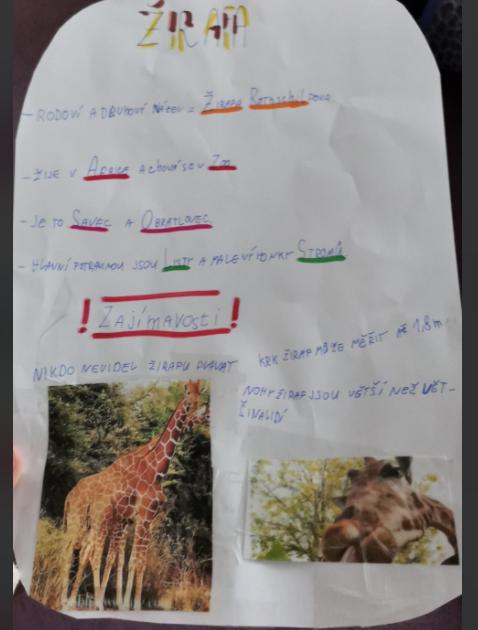 ŽIRAFA
- RODOVÍ A DRUHOVÝ NÁZEV = ŽIRAFA ROTHSCHILDOVA
- ŽIJE V AFRICE A CHOVÁ SE V ZOO
- JE TO SAVEC A OBRATLOVEC
- HLAVNÍ POTRAVNOU JSOU LISTY A MALÉ VÍHONKY STROMŮ
! ZAJÍMAVOSTI !
NIKDO NEVIDEL ŽIRAFU PLAVAT
KRK ŽIRAF MŮŽE MĚŘIT AŽ 1,8m
NOHY ŽIRAF JSOU VĚTŠÍ NEŽ VĚT-
ŠINA LIDÍ